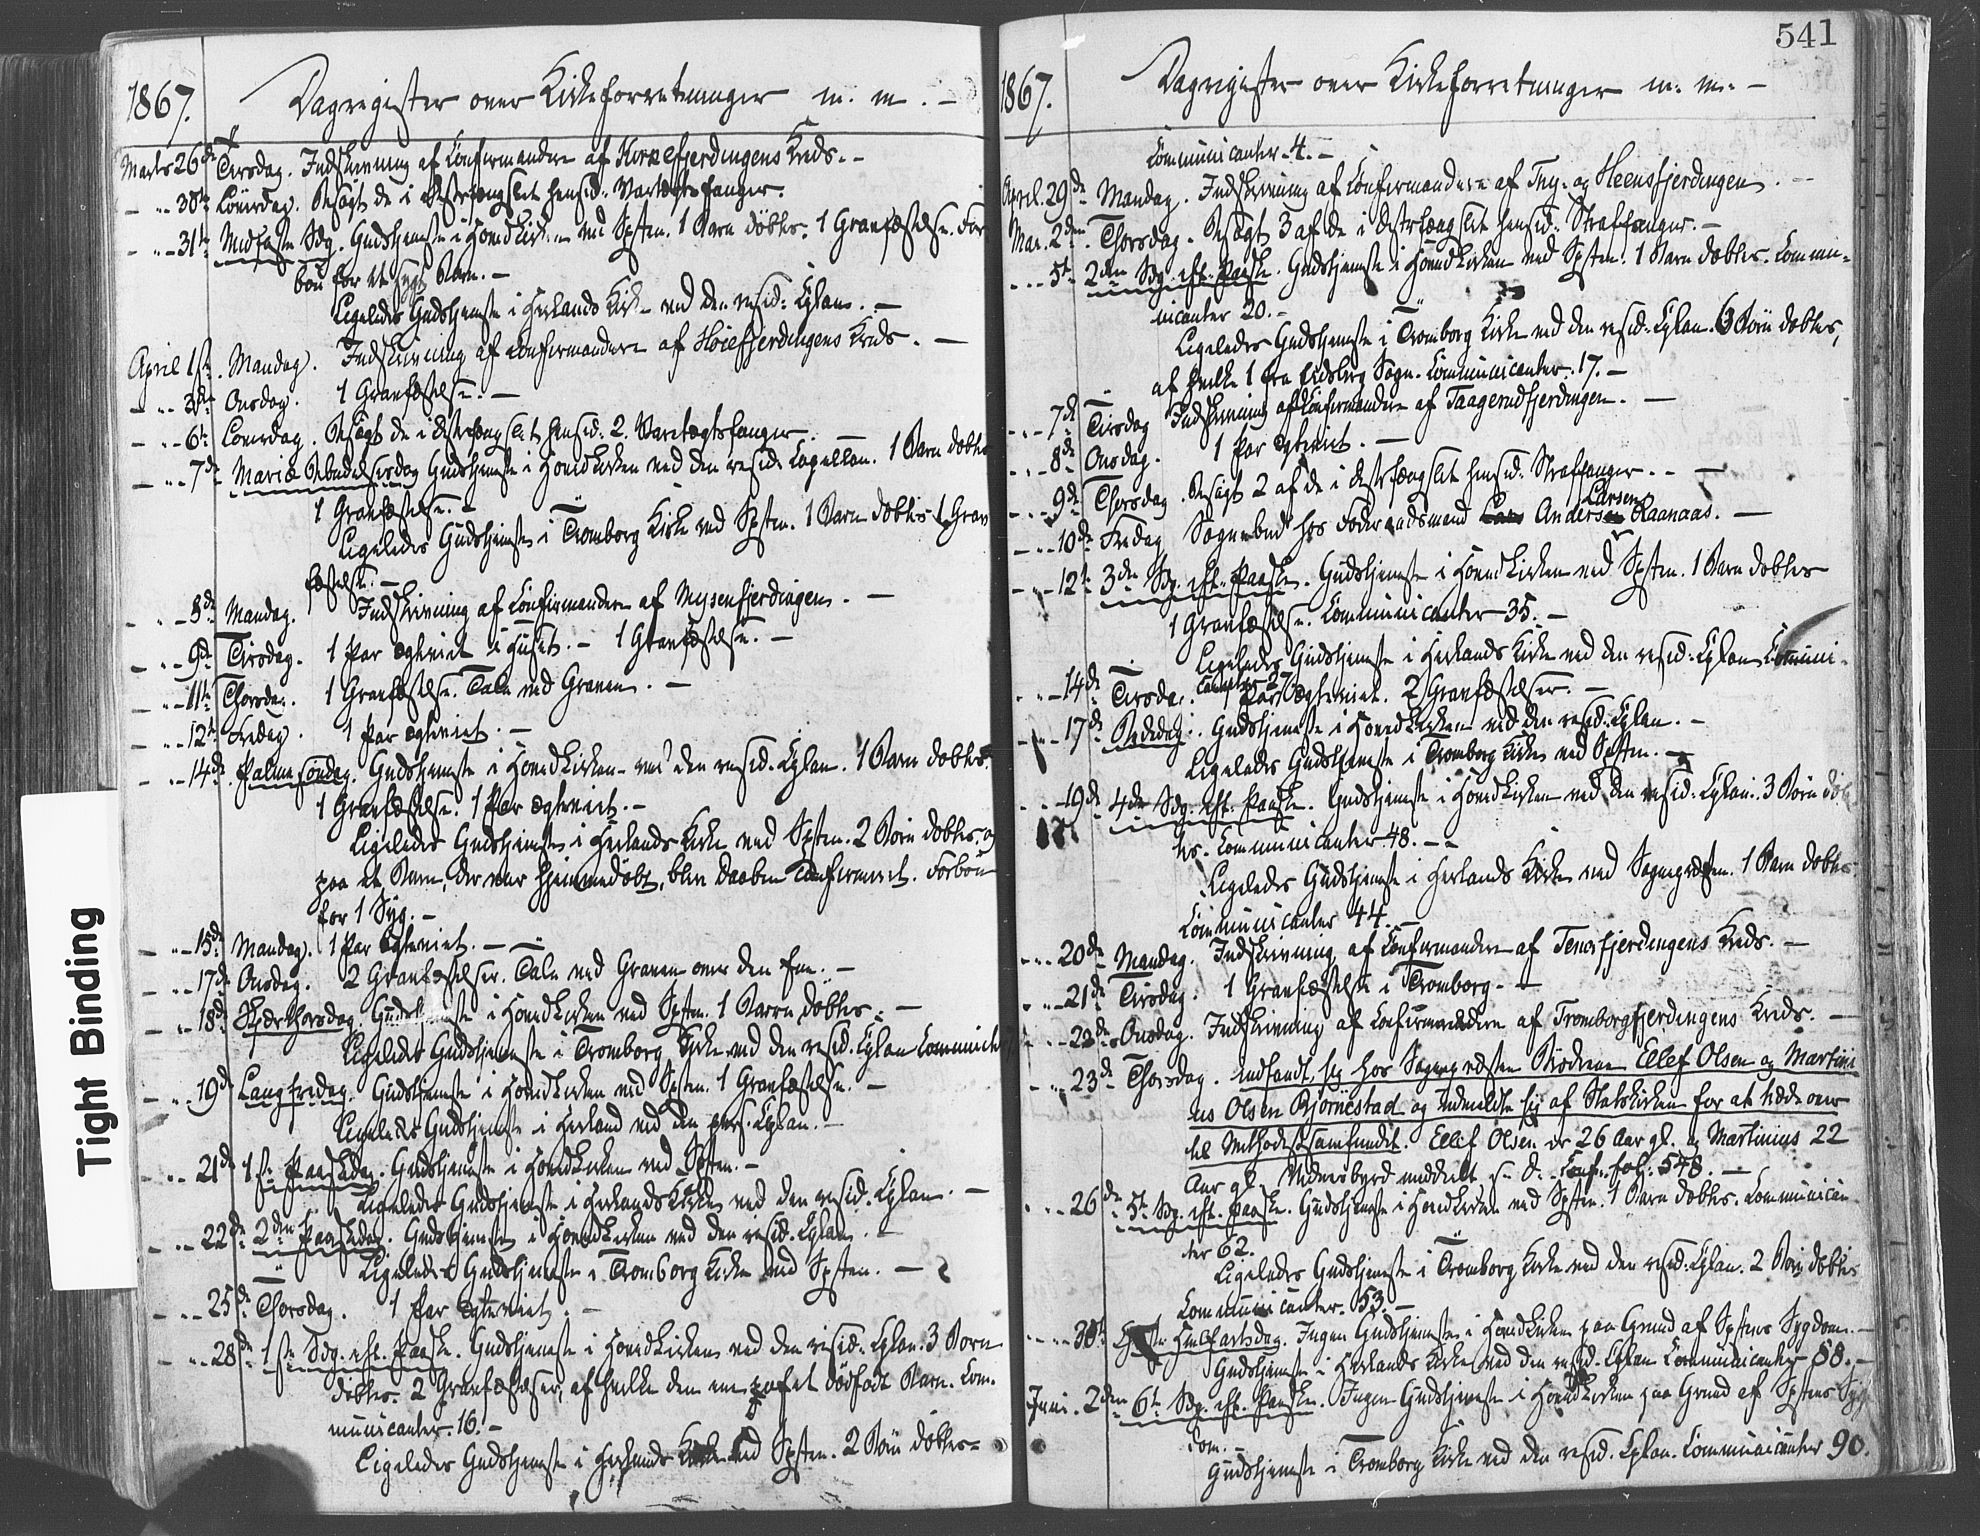 1867. Dagregister over Kirkeforretninger m. m. –
Marts 26de Tirsdag. Indskrivning af Confirmandere af Kirkefjerdingens Kreds. –
– „ – 30te Löverdag. Besögt de i Distrfængslet hensid. Varetægtsfanger.
– „ – 31te Midfaste Sdg. Gudstjeneste i Hovedkirken ved Spsten. 1 Barn döbtes. 1 Gravfæstelse. For
bön for et sygt Barn. –
Ligeledes Gudstjeneste i Herlands Kirke ved den resid. Cplan. –
April 1ste. Mandag. Indskrivning af Confirmandere af Höiefjerdingens Kreds. –
– „ – 3die Onsdag. 1 Gravfæstelse. –
– „ – 6te Löverdag. Besögt de i Distrfængslet hensid. 2. Varetægtsfanger.
– „ – 7de Mariæ Bebudelsesdag Gudstjeneste i Hovedkirken ved den resid. Capellan. 1 Barn döbtes
1 Gravfæstelse. –
Ligeledes Gudstjeneste i Tromborg Kirke ved Spsten. 1 Barn döbtes 1 Grav
fæstelse. –
– „ – 8de Mandag. Indskrivning af Confirmandere af Mysenfjerdingen. –
– „ – 9de Tirsdag. 1 Par ægteviet i Huset. – 1 Gravfæstelse. –
– „ – 11te Thorsdag. 1 Gravfæstelse. Tale ved Graven. –
– „ – 12te Fredag. 1 Par ægteviet. –
– „ – 14de Palmesöndag. Gudstjeneste i Hovedkirken ved den resid. Cplan. 1 Barn döbtes.
1 Gravfæstelse. 1 Par ægteviet. –
Ligeledes Gudstjeneste i Herlands Kirke ved Spsten. 2 Börn döbtes. og
paa et Barn, der var hjemmedöbt, blev Daaben confirmeret. Forbön
for 1 Syg. –
– „ – 15de Mandag. 1 Par ægteviet. –
– „ – 17de Onsdag. 2 Gravfæstelser. Tale ved Graven over den Ene. –
– „ – 18de Skjærthorsdag Gudstjeneste i Hovedkirken ved Spsten. 1 Barn döbtes. –
Ligeledes Gudstjeneste i Tromborg Kirke ved den resid. Cplan
– „ – 19de Langfredag. Gudstjeneste i Hovedkirken ved Spsten. 1 Gravfæstelse. –
Ligeledes Gudstjeneste i Herland ved den pers. Cplan. –
– „ – 21de 1ste Paaskedag. Gudstjeneste i Hovedkirken ved Spsten. –
Ligeledes Gudstjeneste i Herlands Kirke ved den resid. Cplan. –
– „ – 22de 2den Paaskedag. Gudstjeneste i Hovedkirken ved den resid. Cplan. –
Ligeledes Gudstjeneste i Tromborg Kirke ved Spsten. –
– „ – 25de Thorsdag. 1 Par ægteviet. –
– „ – 28de 1ste Sdg. eft. Paaske. Gudstjeneste i Hovedkirken ved den resid. Cplan. 3 Börn
döbtes. 2 Gravfæstelser, af hvilke den ene paa et dödfödt Barn. Com-
municanter. 16. –
Ligeledes Gudstjeneste i Herlands Kirke ved Spsten. 2 Börn döbtes –
Tight Binding
541
1867. Dagregister over Kirkeforretninger m. m. –
Communicanter. 4. –
April. 29de Mandag. Indskrivning af Confirmandere af Ting- og Heensfjerdingen. –
Mai. 2den Thorsdag. Besögt 3 af de i Distrfængslet hensid. Straffanger. –
– „ – 5te 2den Sdg. eft. Paaske. Gudstjeneste i Hovedkirken ved Spsten. 1 Barn döbtes. Commu-
nicanter 20. –
Ligeledes Gudstjeneste i Tromborg Kirke ved den resid. Cplan. 3 Börn döbtes,
af hvilke 1 fra Eidsberg Sogn. Communicanter. 17. –
– „ – 7de Tirsdag Indskrivning af Confirmandere af Taagerudfjerdingen. –
– „ – 8de Onsdag. 1 Par ægteviet. –
– „ – 9de Thorsdag. Besögt 2 af de i Distrfængslet hensid. Straffanger. –
– „ – 10de Fredag Sognebud hos Föderaadsmand Anders Larsen Raanaas. –
– „ – 12te 3die Sdg. eft. Paaske. Gudstjeneste i Hovedkirken ved Spsten. 1 Barn döbtes
1 Gravfæstelse. Communicanter 35. –
Ligeledes Gudstjeneste i Herlands Kirke ved den resid. Cplan Communi-
canter 27.
– „ – 14de Tirsdag. Par ægteviet. 2 Gravfæstelser. –
– „ – 17de Bededag. Gudstjeneste i Hovedkirken ved den resid. Cplan. –
Ligeledes Gudstjeneste i Tromborg Kirke ved Spsten. –
– „ – 19de 4de Sdg. eft. Paaske. Gudstjeneste i Hovedkirken ved den resid. Cplan. 3 Börn döb
tes. Communicanter 48. –
Ligeledes Gudstjeneste i Herlands Kirke ved Sognepræsten. 1 Barn döbtes
Communicanter 44. –
– „ – 20de Mandag. Indskrivning af Confirmandere af Tenorfjerdingens Kreds. –
– „ – 21de Tirsdag. 1 Gravfæstelse i Tromborg. –
– „ – 22de Onsdag. Indskrivning af Confirmandere af Tromborgfjerdingens Kreds. –
– „ – 23de Thorsdag. indfandt sig hos Sognepræsten Brödrene Ellef Olsen og Martini
us Olsen Björnestad og udmeldte sig af Statskirken for at træde over
til Methodistsamfundet. Ellef Olsen er 26 Aar gl. og Martinius 22
Aar gl. Vidnesbyrd meddeelt s. D. Conf. fol. 548. –
– „ – 26de 5te Sdg. eft. Paaske. Gudstjeneste i Hovedkirken ved Spsten. 1 Barn döbtes. Communican
ter 62.
Ligeledes Gudstjeneste i Tromborg Kirke ved den resid. Cplan. 2 Börn döbtes
Communicanter. 53. –
– „ – 30te Christi Himmelfartsdag. Ingen Gudstjeneste i Hovedkirken paa Grund af Spstens Sygdom. –
Gudstjeneste i Herlands Kirke ved den resid. Cplan Communicanter 88. –
Juni. 2den 6te Sdg. eft. Paaske. Ingen Gudstjeneste i Hovedkirken paa Grund af Spstens Syg
dom. –
Gudstjeneste i Tromborg Kirke ved den resid. Cplan. Communicanter 90.